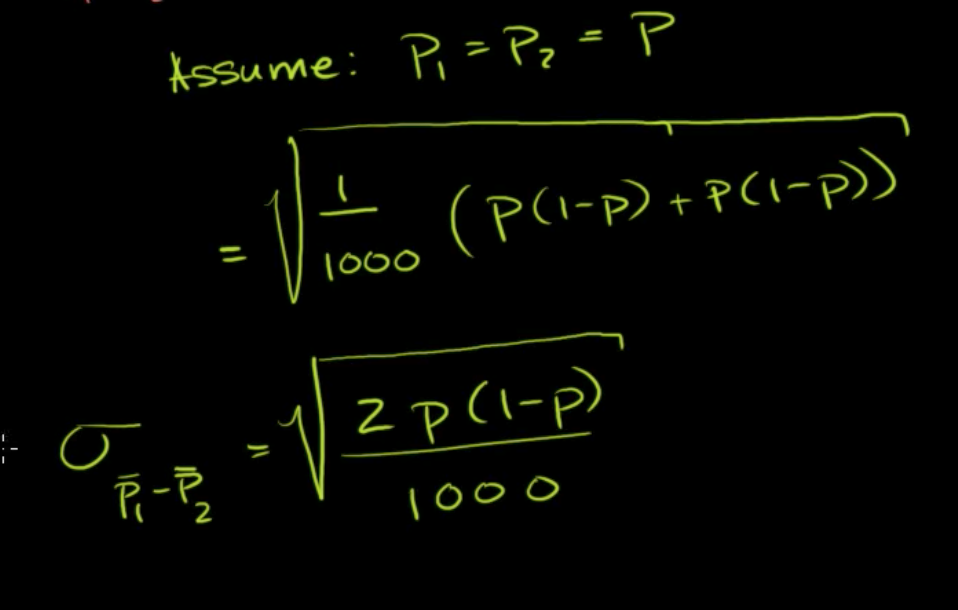 Assume: P₁ = P₂ = P
= √(1/1000 (P(1-P) + P(1-P)))
σ_(P̄₁-P̄₂) = √(2P(1-P)/1000)